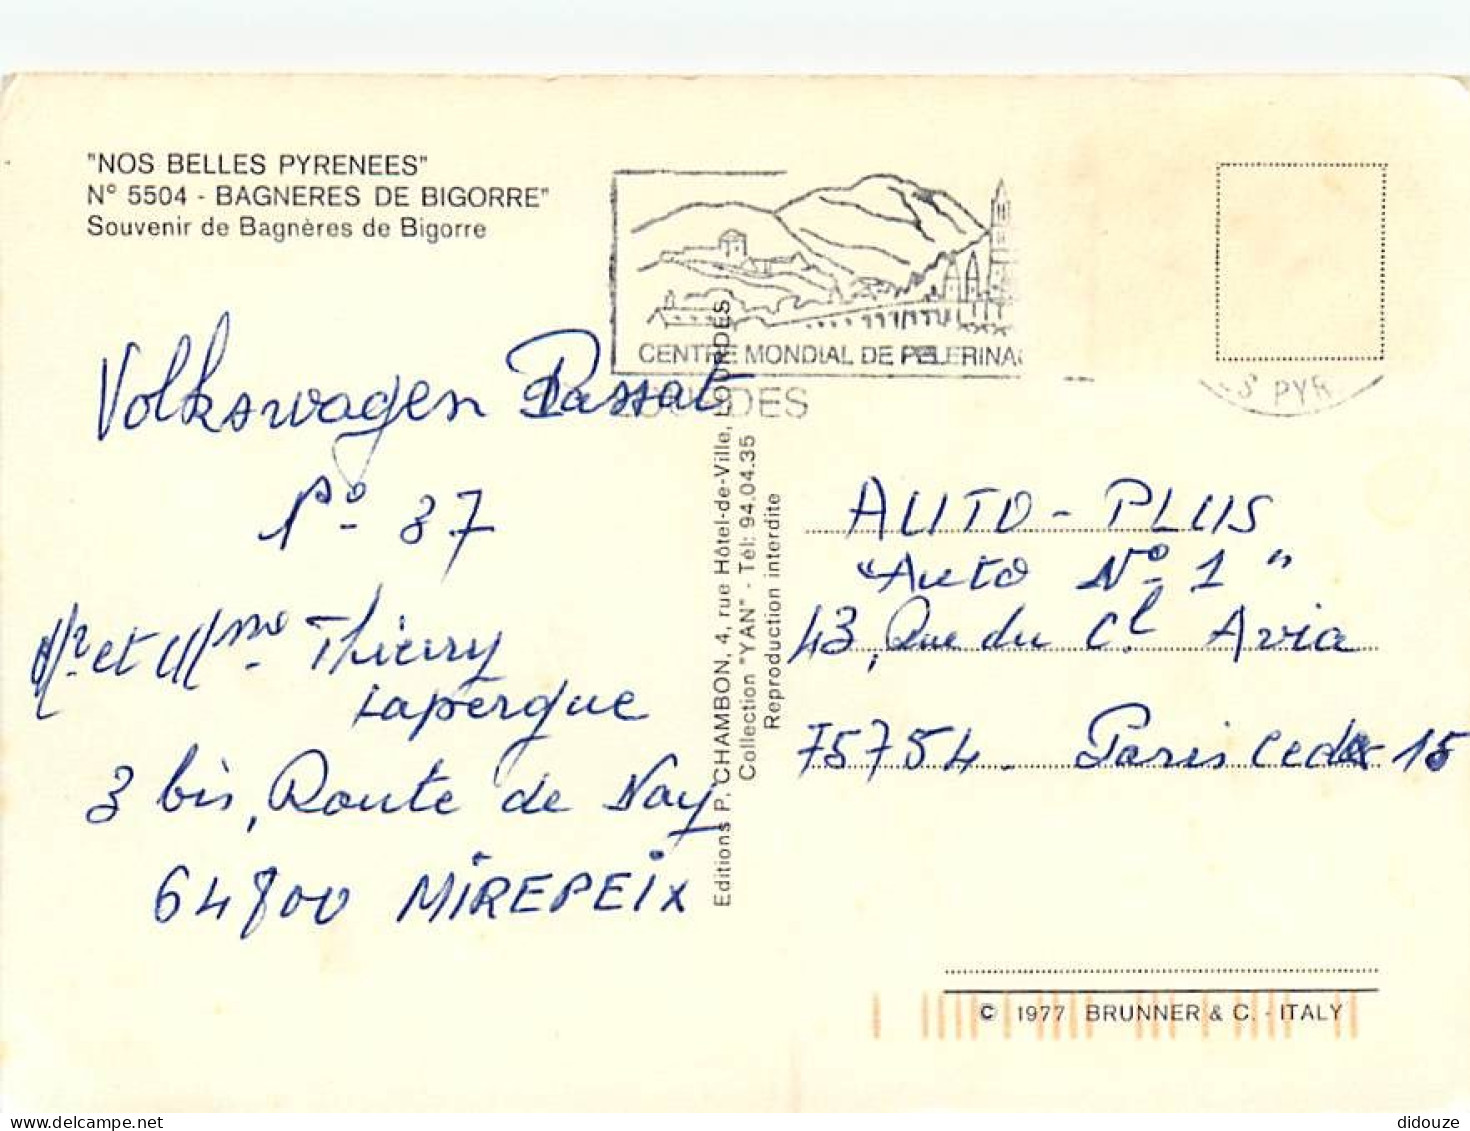 "NOS BELLES PYRENEES"
N° 5504 - BAGNERES DE BIGORRE"
Souvenir de Bagnères de Bigorre
CENTRE MONDIAL DE PELERINA
PYR
Volkswagen Passat
N° 37
Mr et Mme Thierry
Lapergue
3 bis, Route de Nay
64800 MIREPEIX
Editions P. CHAMBON, 4, rue Hôtel-de-Ville, LOURDES
Collection "YAN" - Tél: 94.04.35
Reproduction interdite
AUTO-PLUS
"Auto N° 1"
43, Rue du Cl Avia
75754. Paris Cedex 15
© 1977 BRUNNER & C. - ITALY
didouze